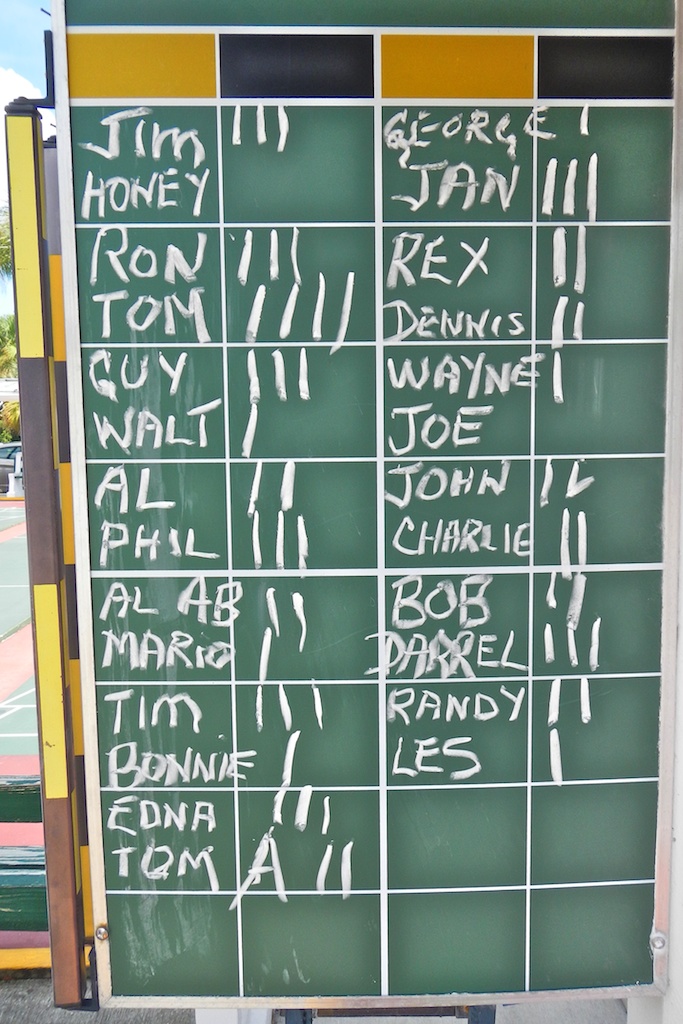 Jim III
HONEY
RON III
TOM IIII
GUY III
WALT I
AL II
PHIL III
AL AB II
MARIO I
TIM III
BONNIE I
EDNA III
TOM A II
GEORGE I
JAN III
REX II
DENNIS II
WAYNE I
JOE
JOHN II
CHARLIE II
BOB II
DARREL III
RANDY II
LES I